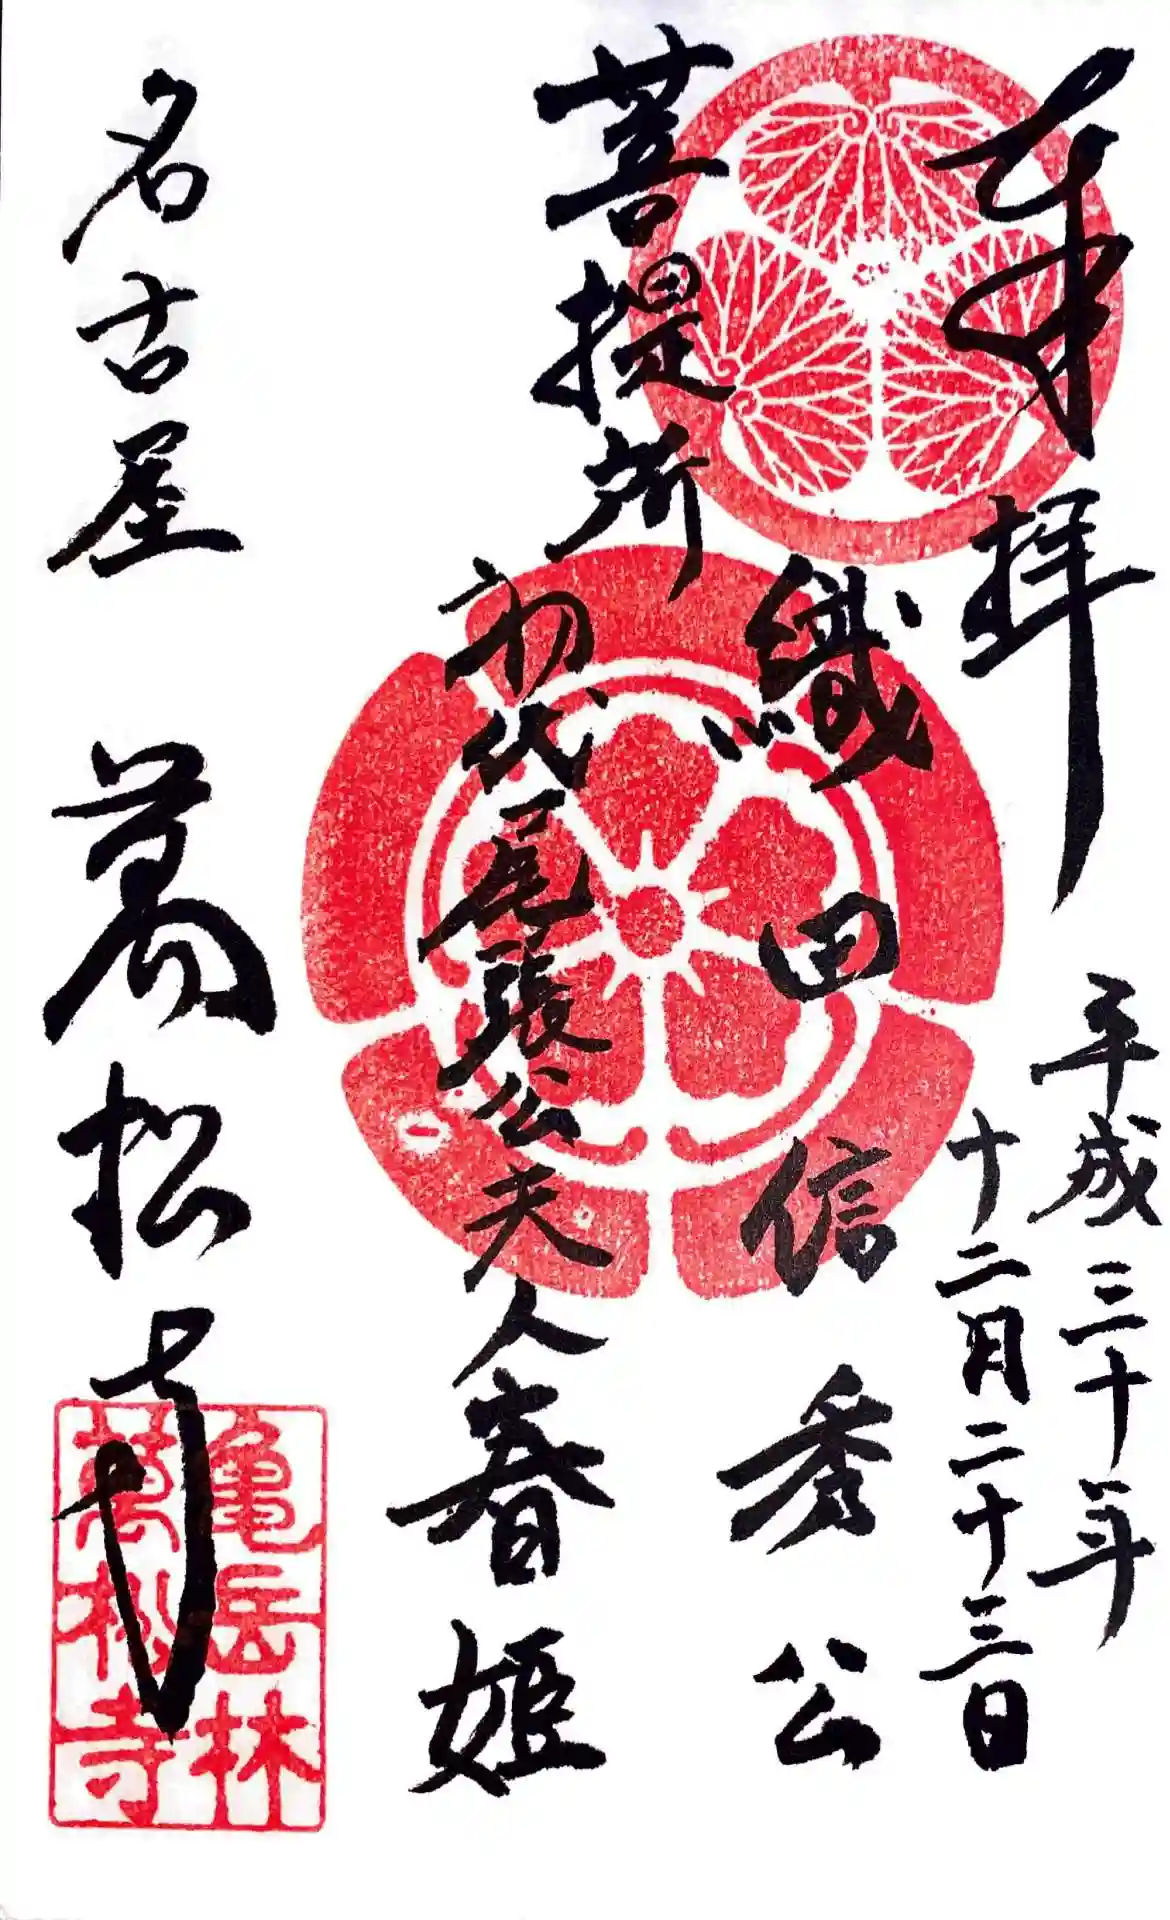 奉拝
平成三十年
十二月二十三日
織田信秀公
菩提所
初代尾張公夫人春姫
名古屋 萬松寺
亀岳林
萬松寺